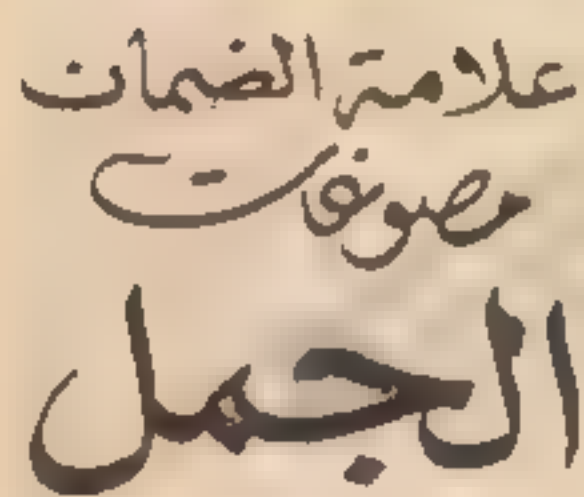 علامة الضمان
مصوغات
الجمل